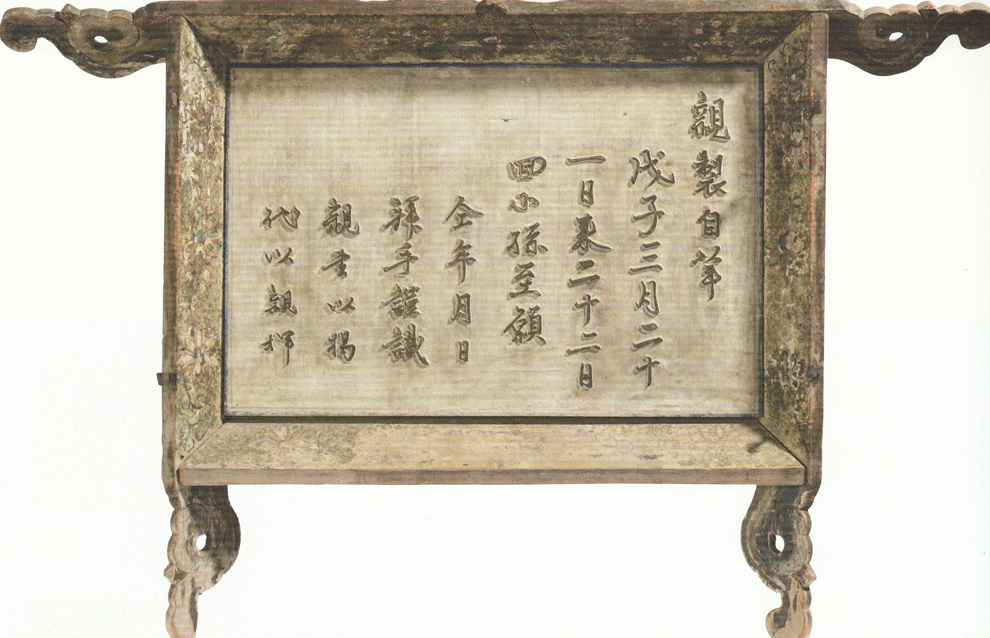 親製自筆
戊子三月二十
一日來二十二日
回小孫至願
仝年月日
拜手謹識
親書以揭
代以親揮